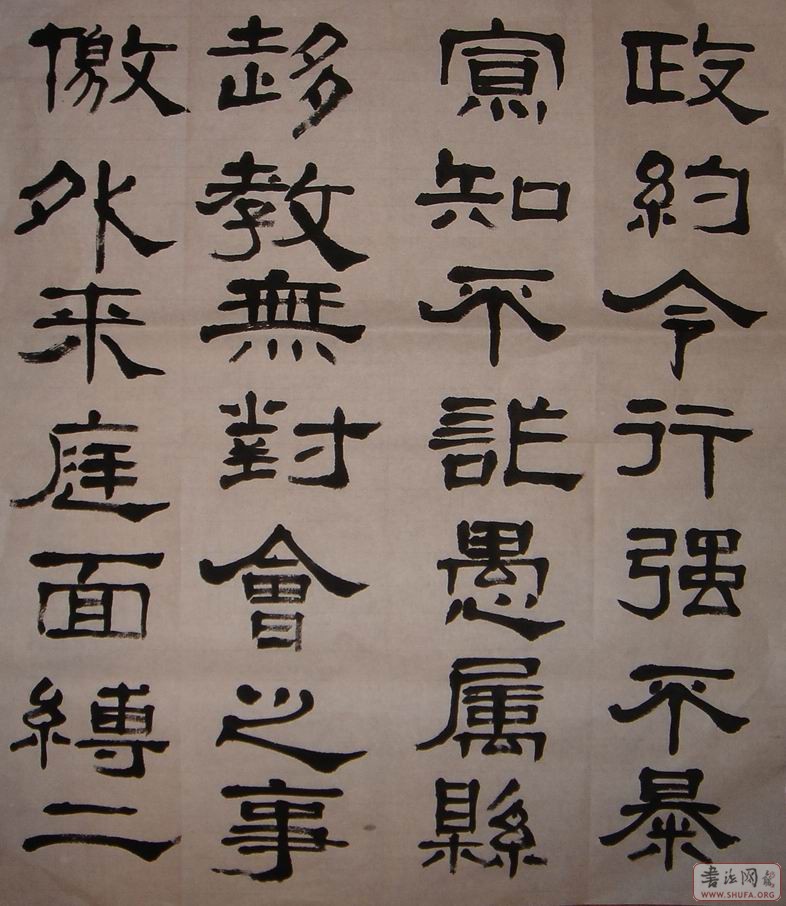 政約令行强不暴
寡知不詐愚属縣
趍教無對會之事
儌外来庭面縛二
书法网
WWW.SHUFA.ORG